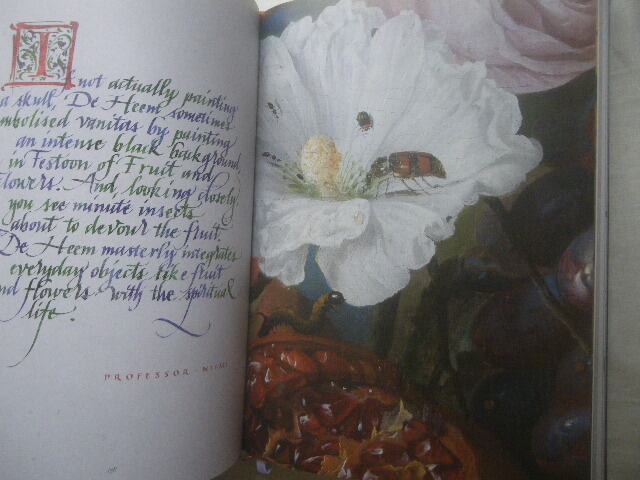 I
f not actually painting
a skull, De Heem sometimes
mbolised vanitas by painting
an intense black background,
in Festoon of Fruit and
Flowers. And looking closely,
you see minute insects
about to devour the fruit.
De Heem masterly integrates
everyday objects like fruit
nd flowers with the spiritual
life.
PROFESSOR